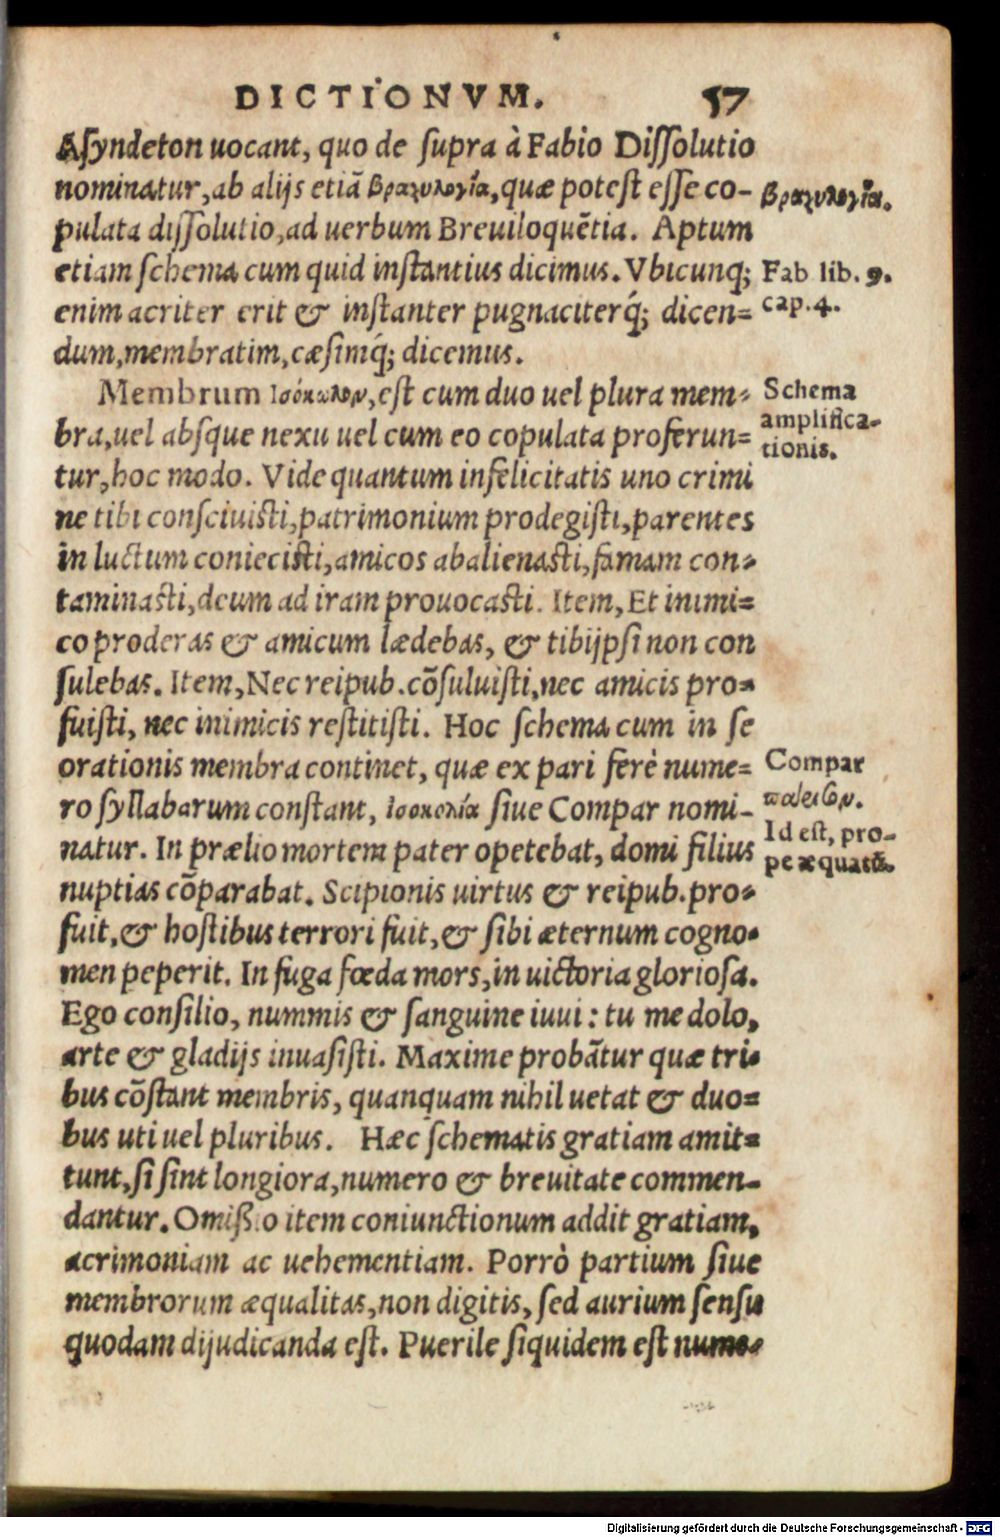 DICTIONVM. 57
Asyndeton uocant, quo de supra à Fabio Dissolutio
nominatur, ab alijs etiā βραχυλογία, quæ potest esse co-
pulata dissolutio, ad uerbum Breuiloquētia. Aptum
etiam schema cum quid instantius dicimus. Vbicunq;
enim acriter erit & instanter pugnaciterq́; dicen=
dum, membratim, cæsimq́; dicemus.
βραχυλογία.
Fab lib. 9.
cap. 4.
Membrum Ισόκωλον, est cum duo uel plura mem-
bra, uel absque nexu uel cum eo copulata proferun=
tur, hoc modo. Vide quantum infelicitatis uno crimi
ne tibi consciuisti, patrimonium prodegisti, parentes
in luctum coniecisti, amicos abalienasti, famam con-
taminasti, deum ad iram prouocasti. Item, Et inimi=
co proderas & amicum lædebas, & tibijpsi non con
sulebas. Item, Nec reipub. cōsuluisti, nec amicis pro-
fuisti, nec inimicis restitisti. Hoc schema cum in se
orationis membra continet, quæ ex pari ferè nume=
ro syllabarum constant, ισοκολία siue Compar nomi-
natur. In prælio mortem pater opetebat, domi filius
nuptias cōparabat. Scipionis uirtus & reipub. pro-
fuit, & hostibus terrori fuit, & sibi æternum cogno-
men peperit. In fuga fœda mors, in uictoria gloriosa.
Ego consilio, nummis & sanguine iuui: tu me dolo,
arte & gladijs inuasisti. Maxime probātur quæ tri-
bus cōstant membris, quanquam nihil uetat & duo=
bus uti uel pluribus. Hæc schematis gratiam amit=
tunt, si sint longiora, numero & breuitate commen-
dantur. Omißio item coniunctionum addit gratiam,
acrimoniam ac uehementiam. Porrò partium siue
membrorum æqualitas, non digitis, sed aurium sensu
quodam dijudicanda est. Puerile siquidem est nume-
Schema
amplifica-
tionis.
Compar
Id est, pro-
pe æquatū.
Digitalisierung gefördert durch die Deutsche Forschungsgemeinschaft - DFG